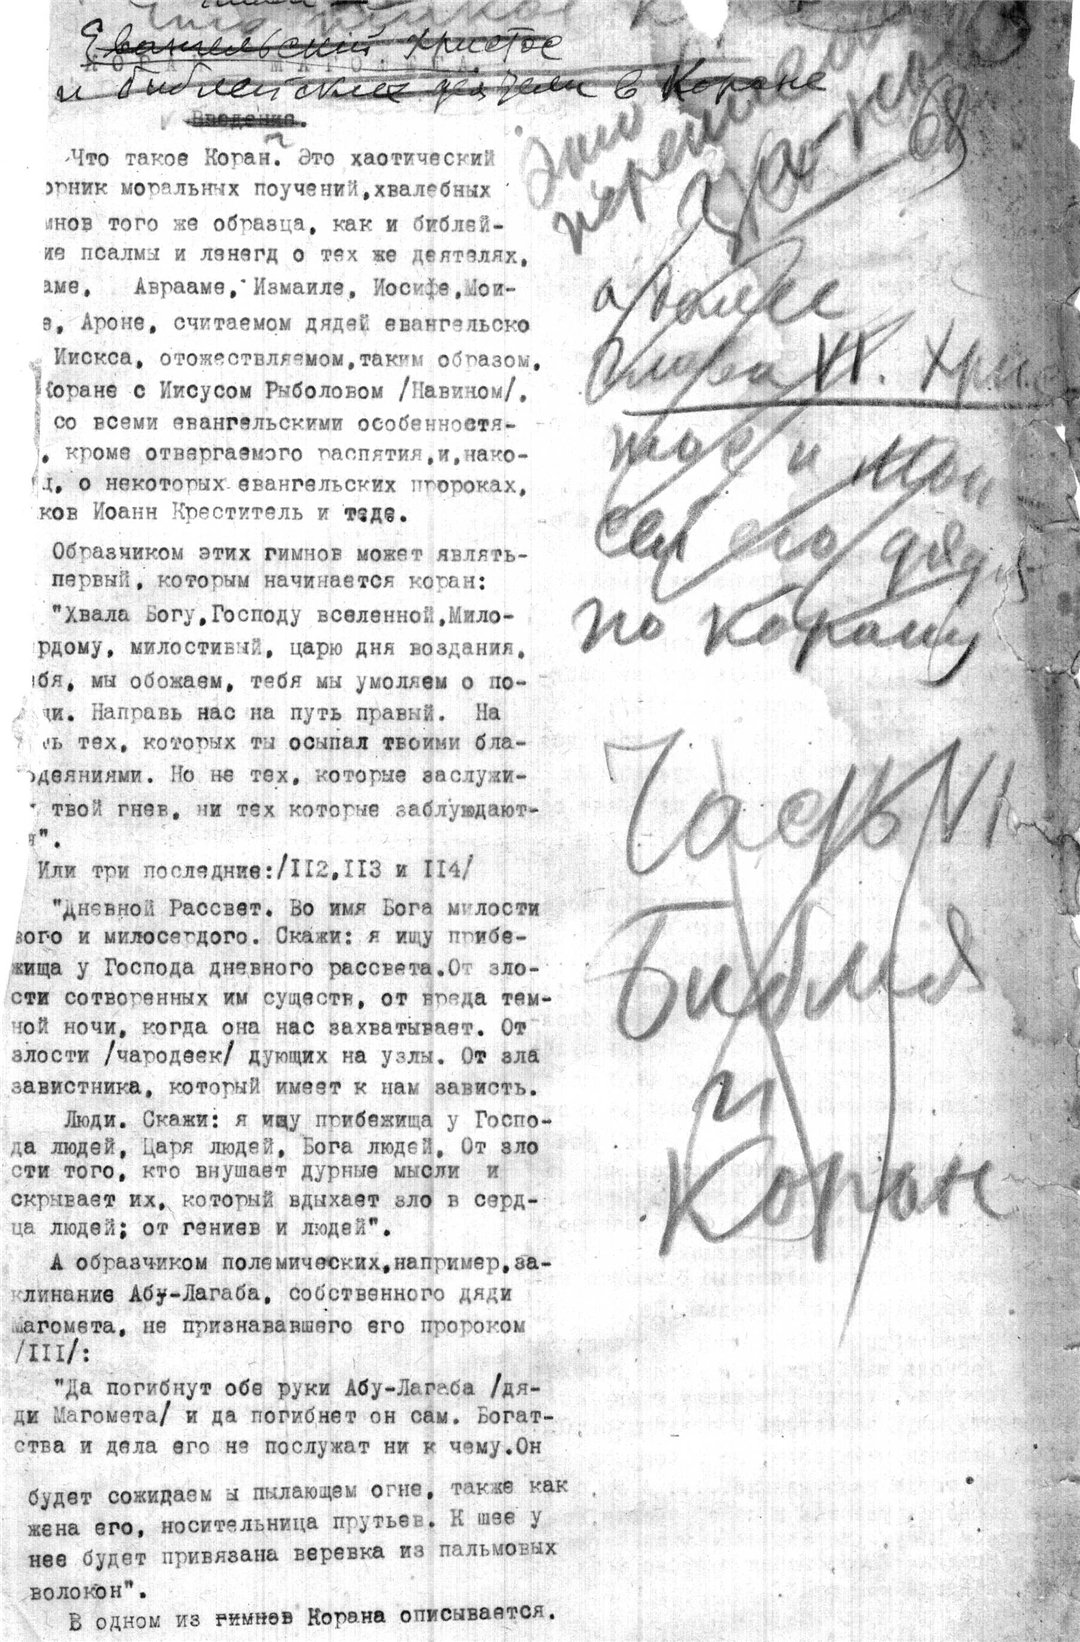 Евангельский Христос
и библейские деятели в Коране
КОРАН МАГОМЕТА.
Введение.
Что такое Коран? Это хаотический
орник моральных поучений,хвалебных
мнов того же образца, как и библей-
ие псалмы и ленегд о тех же деятелях,
аме, Аврааме, Измаиле, Иосифе,Мои-
е, Ароне, считаемом дядей евангельско
Иискса, отожествляемом,таким образом,
Коране с Иисусом Рыболовом /Навином/,
со всеми евангельскими особенностя-
, кроме отвергаемого распятия,и,нако-
ц, о некоторых евангельских пророках,
ков Иоанн Креститель и тede.
Образчиком этих гимнов может являть-
первый, которым начинается коран:
"Хвала Богу,Господу вселенной,Мило-
рдому, милостивый, царю дня воздания,
ебя, мы обожаем, тебя мы умоляем о по-
щи. Направь нас на путь правый. На
ть тех, которых ты осыпал твоими бла-
одеяниями. Но не тех, которые заслужи-
твой гнев, ни тех которые заблуждают-
я".
Или три последние:/II2,II3 и II4/
"Дневной Рассвет. Во имя Бога милости
вого и милосердого. Скажи: я ищу прибе-
жища у Господа дневного рассвета.От зло-
сти сотворенных им существ, от вреда тем-
ной ночи, когда она нас захватывает. От
злости /чародеек/ дующих на узлы. От зла
завистника, который имеет к нам зависть.
Люди. Скажи: я ищу прибежища у Госпо-
да людей, Царя людей, Бога людей, От зло
сти того, кто внушает дурные мысли и
скрывает их, который вдыхает зло в серд-
ца людей; от гениев и людей".
А образчиком полемических,например,за-
клинание Абу-Лагаба, собственного дяди
Магомета, не признававшего его пророком
/III/:
"Да погибнут обе руки Абу-Лагаба /дя-
ди Магомета/ и да погибнет он сам. Богат-
ства и дела его не послужат ни к чему.Он
будет сожидаем ы пылающем огне, также как
жена его, носительница прутьев. К шее у
нее будет привязана веревка из пальмовых
волокон".
В одном из гимнов Корана описывается.
Это
68
а далее
Глава VI. Хри
стос и Мои
сей его дядя
по Корану
Часть VI
Библия
и
Коран